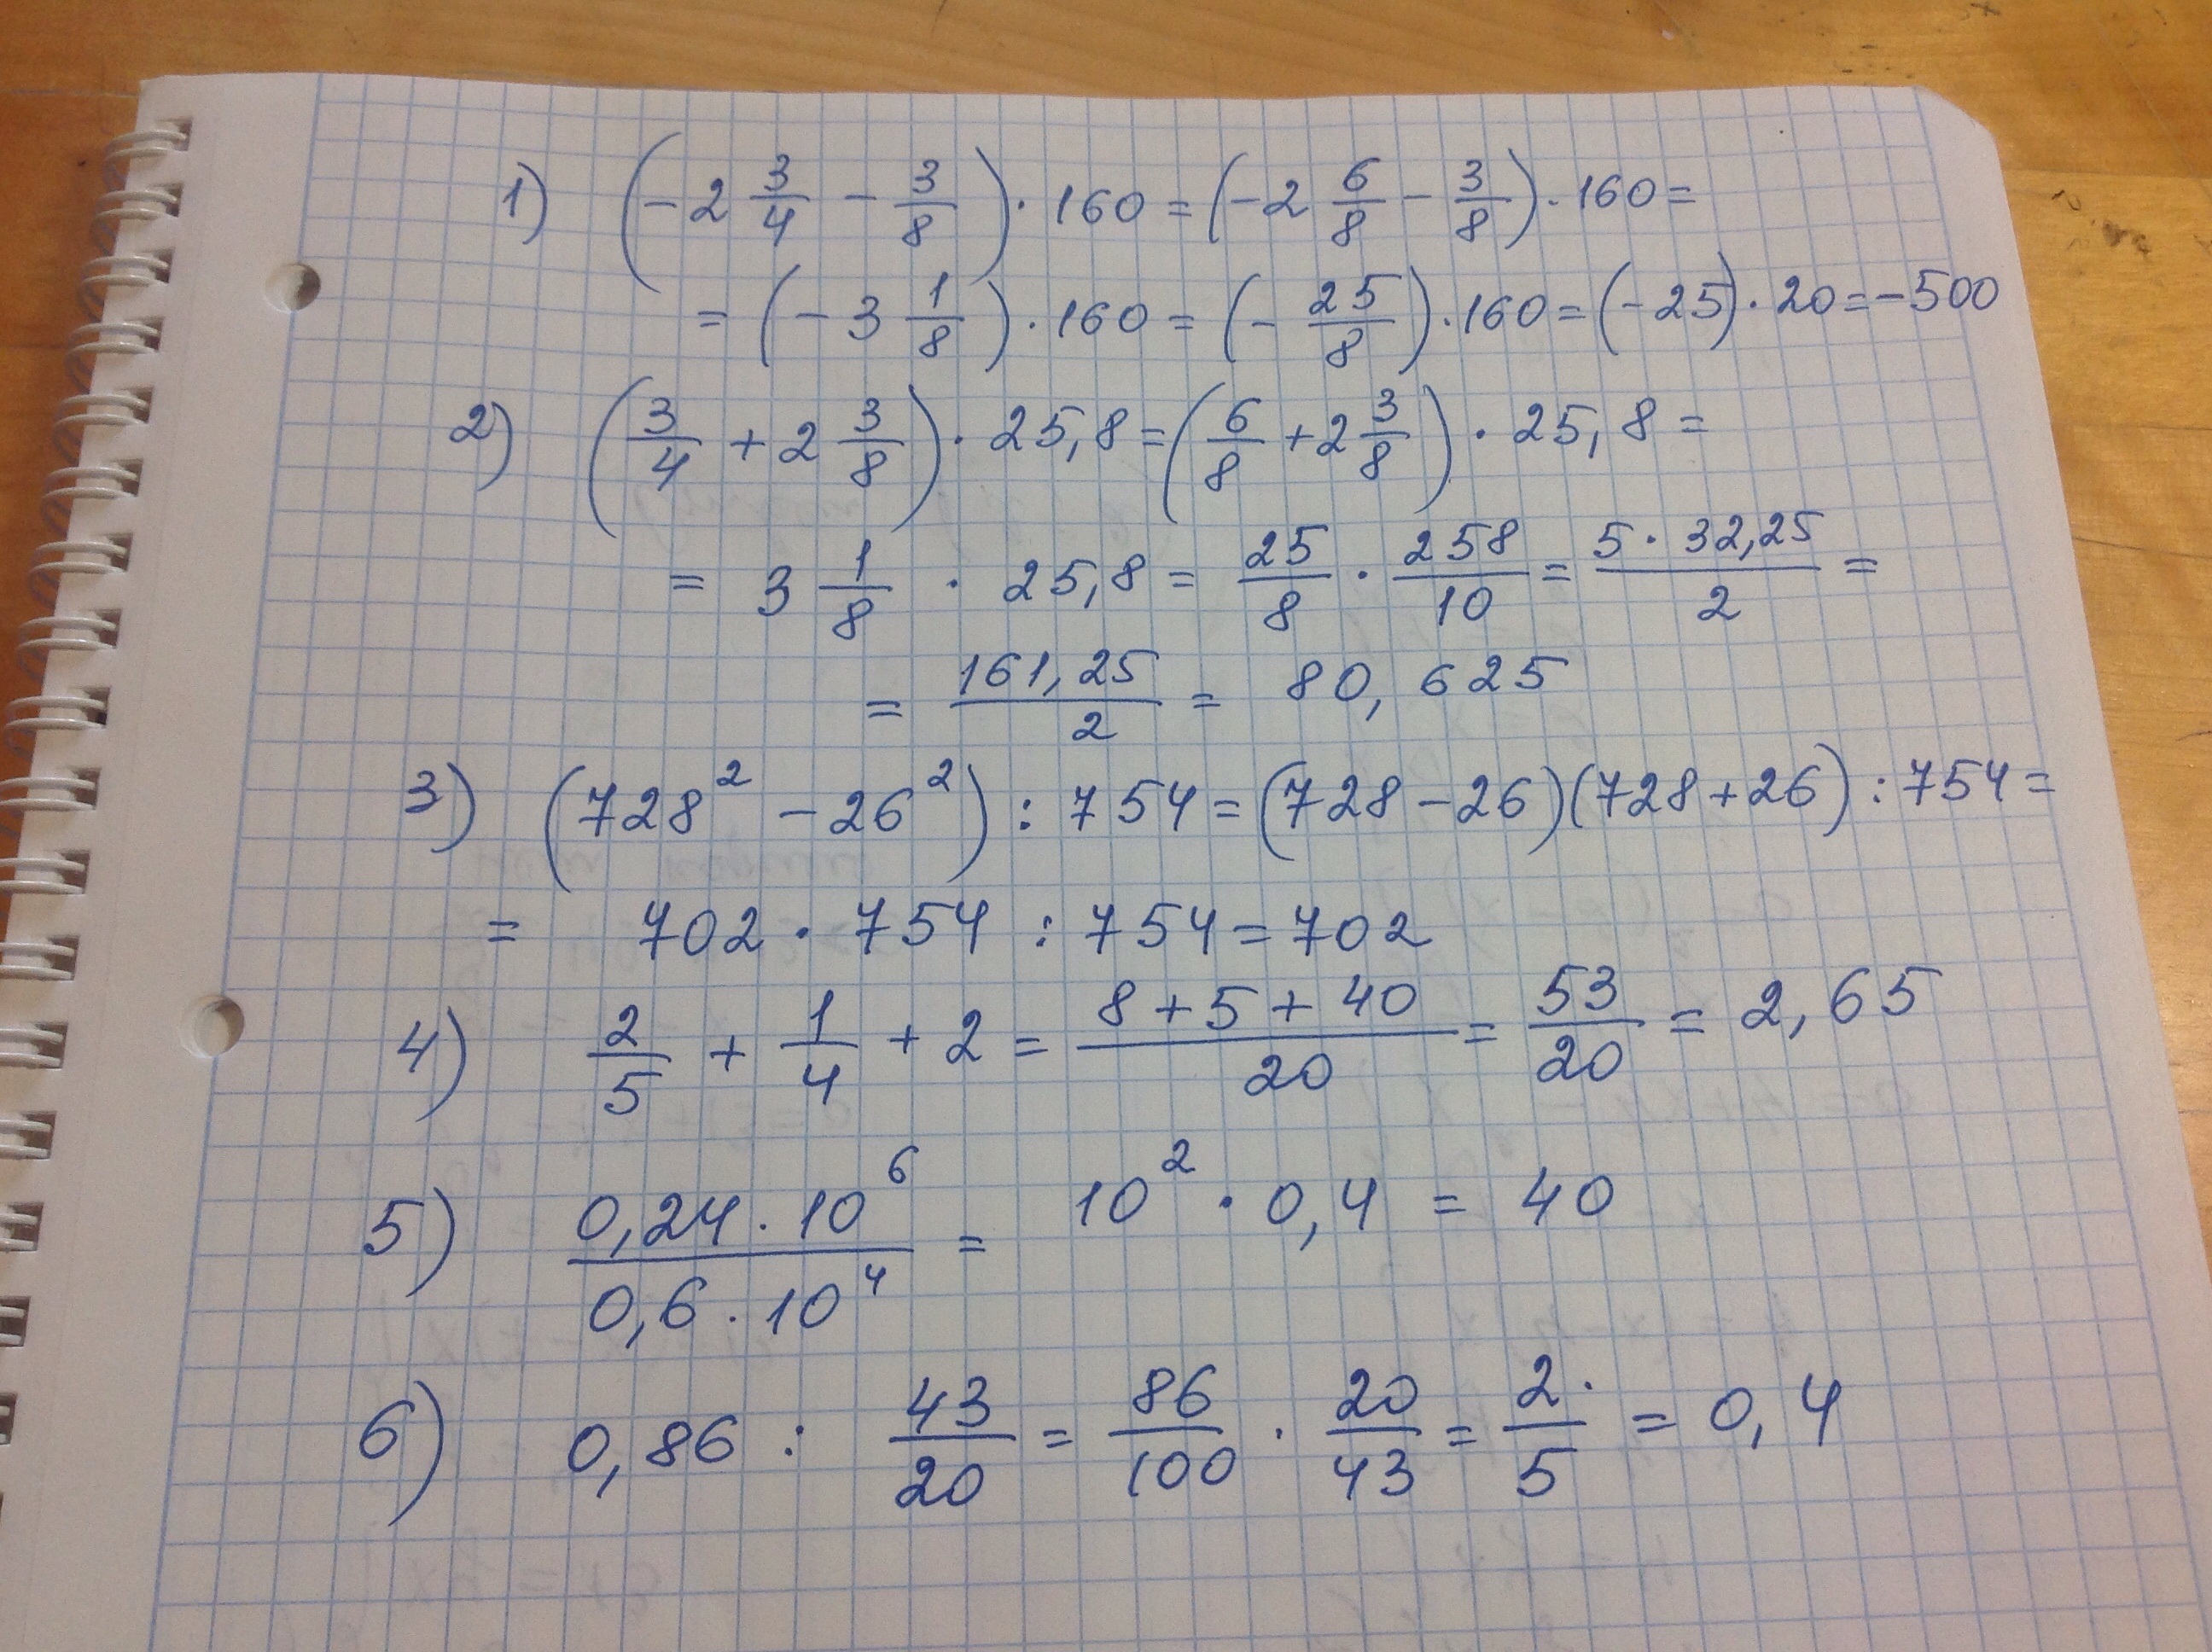 1) (-2 3/4 - 3/8) · 160 = (-2 6/8 - 3/8) · 160 =
= (-3 1/8) · 160 = (- 25/8) · 160 = (-25) · 20 = -500
2) (3/4 + 2 3/8) · 25,8 = (6/8 + 2 3/8) · 25,8 =
= 3 1/8 · 25,8 = 25/8 · 258/10 = (5 · 32,25)/2 =
= 161,25/2 = 80,625
3) (728² - 26²) : 754 = (728 - 26)(728 + 26) : 754 =
= 702 · 754 : 754 = 702
4) 2/5 + 1/4 + 2 = (8 + 5 + 40)/20 = 53/20 = 2,65
5) (0,24 · 10⁶)/(0,6 · 10⁴) = 10² · 0,4 = 40
6) 0,86 : 43/20 = 86/100 · 20/43 = 2/5 = 0,4